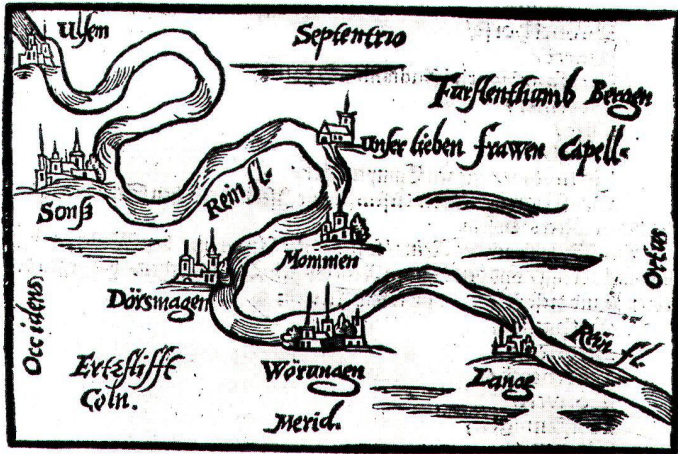 Ulsem
Septentrio
Furstenthumb Bergen
unser lieben Frawen Capell
Rein fl.
Sonß
Mommen
Dörsmagen
Occidens
Ortus
Ertzstifft
Cöln.
Wörungen
Lange
Rein fl.
Merid.